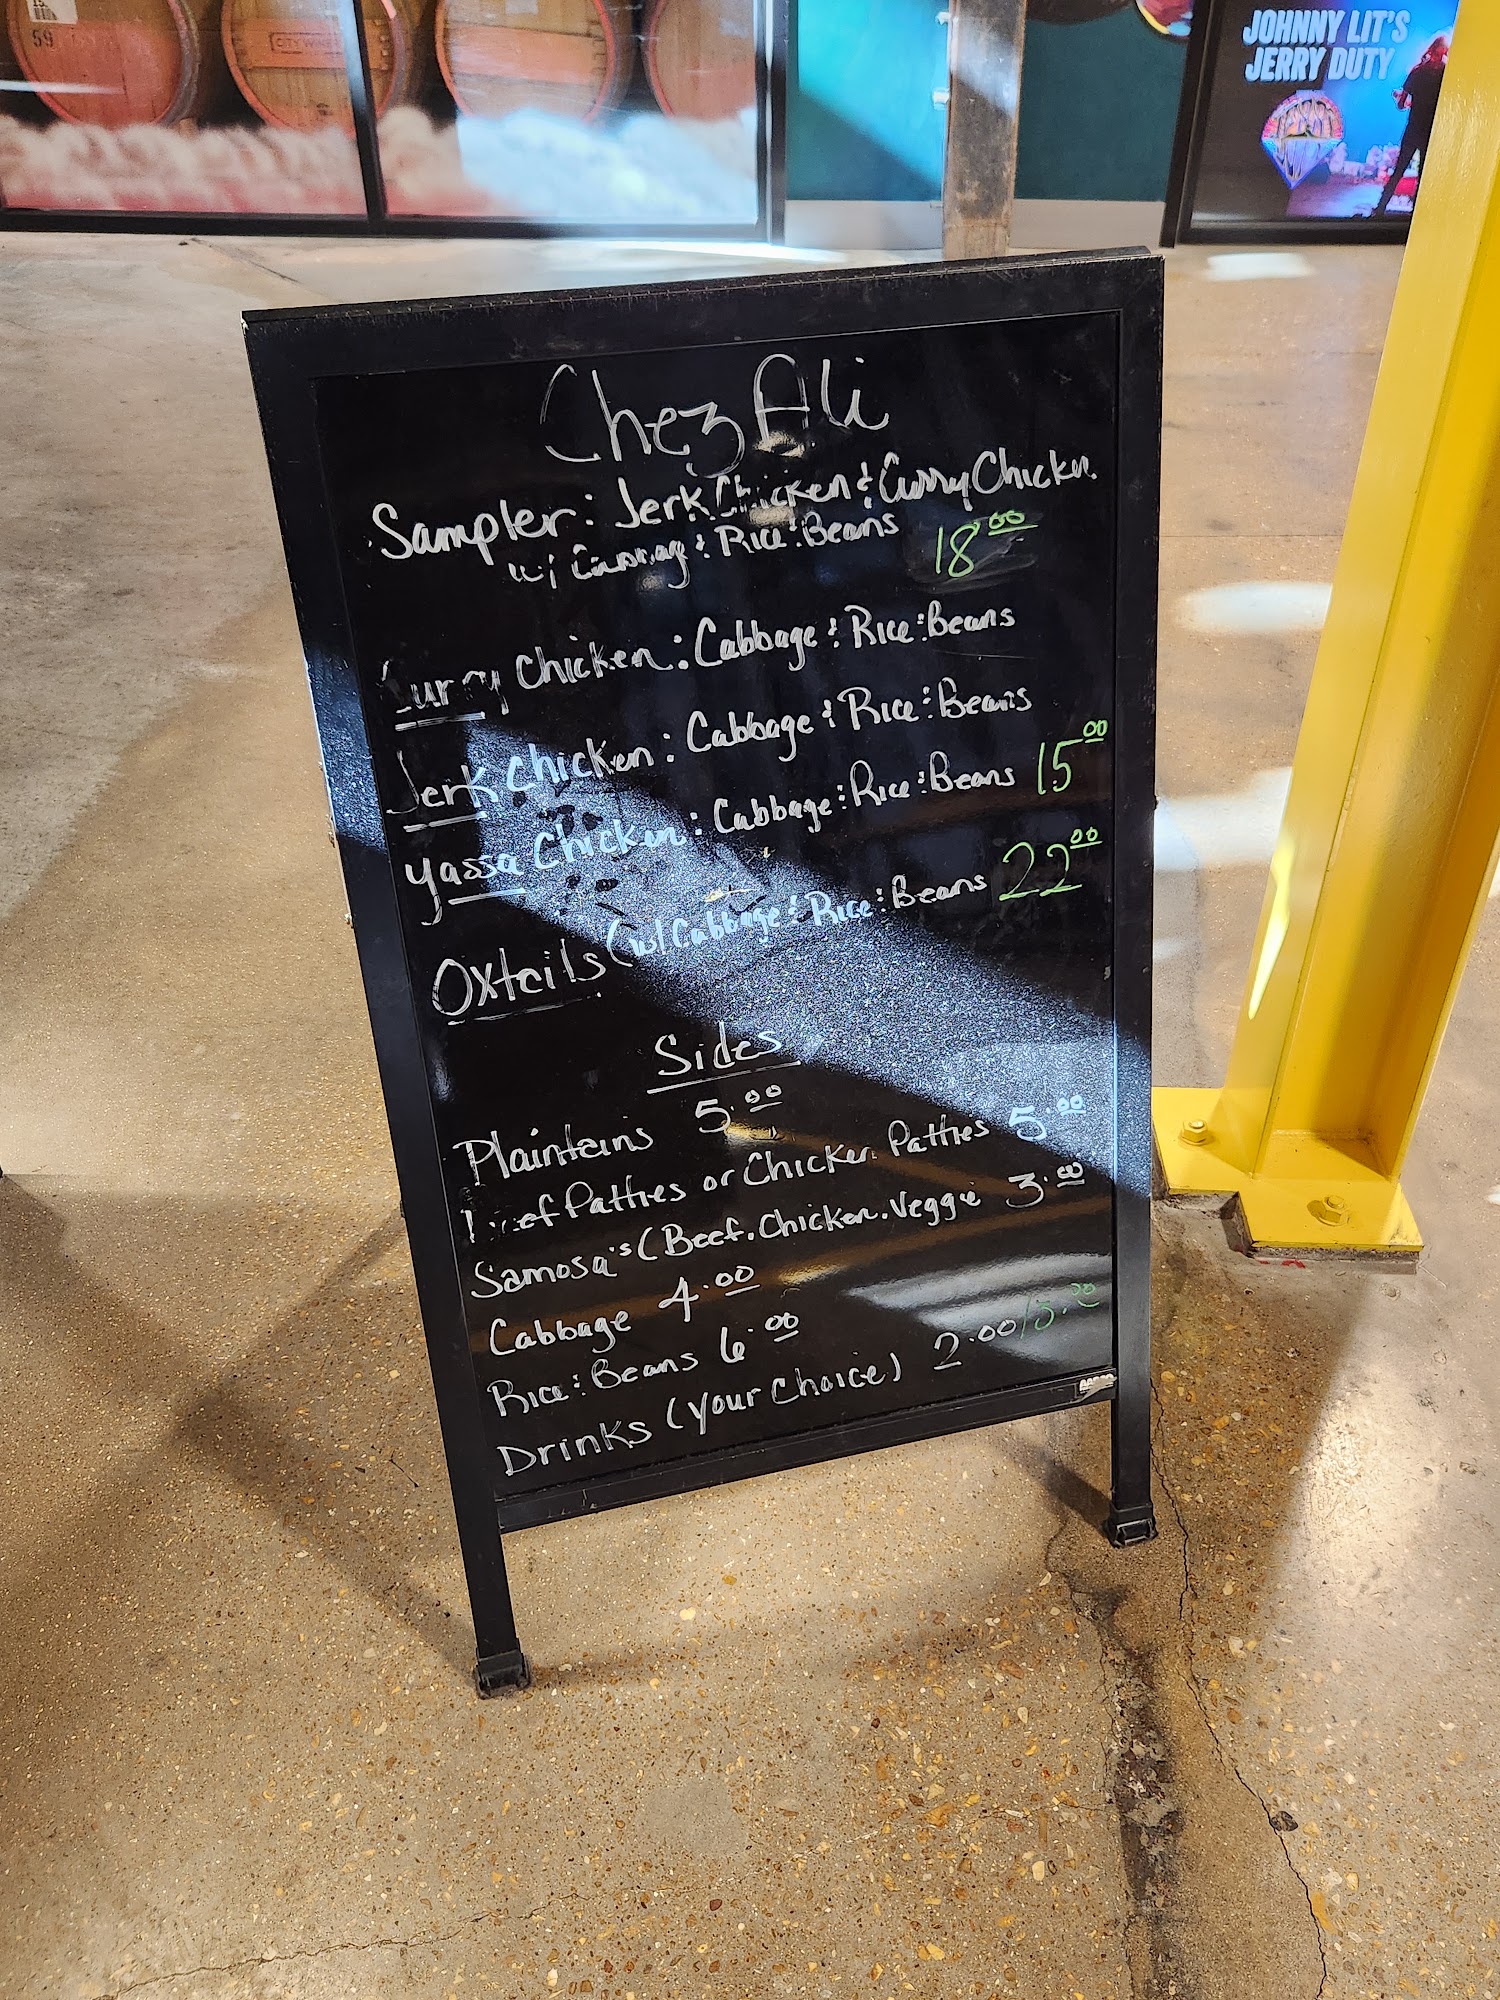 59
CITY WINERY
JOHNNY LIT'S
JERRY DUTY
Chez Ali
Sampler: Jerk Chicken & Curry Chicken
w/ Cabbage & Rice & Beans 18.00
Curry Chicken: Cabbage & Rice & Beans
Jerk Chicken: Cabbage & Rice & Beans
Yassa Chicken: Cabbage & Rice & Beans 15.00
Oxtails (w/ Cabbage & Rice & Beans 22.00
Sides
Plaintains 5.00
Beef Patties or Chicken Patties 5.00
Samosa's (Beef. Chicken. Veggie 3.00
Cabbage 4.00
Rice & Beans 6.00
Drinks (Your Choice) 2.00/3.00